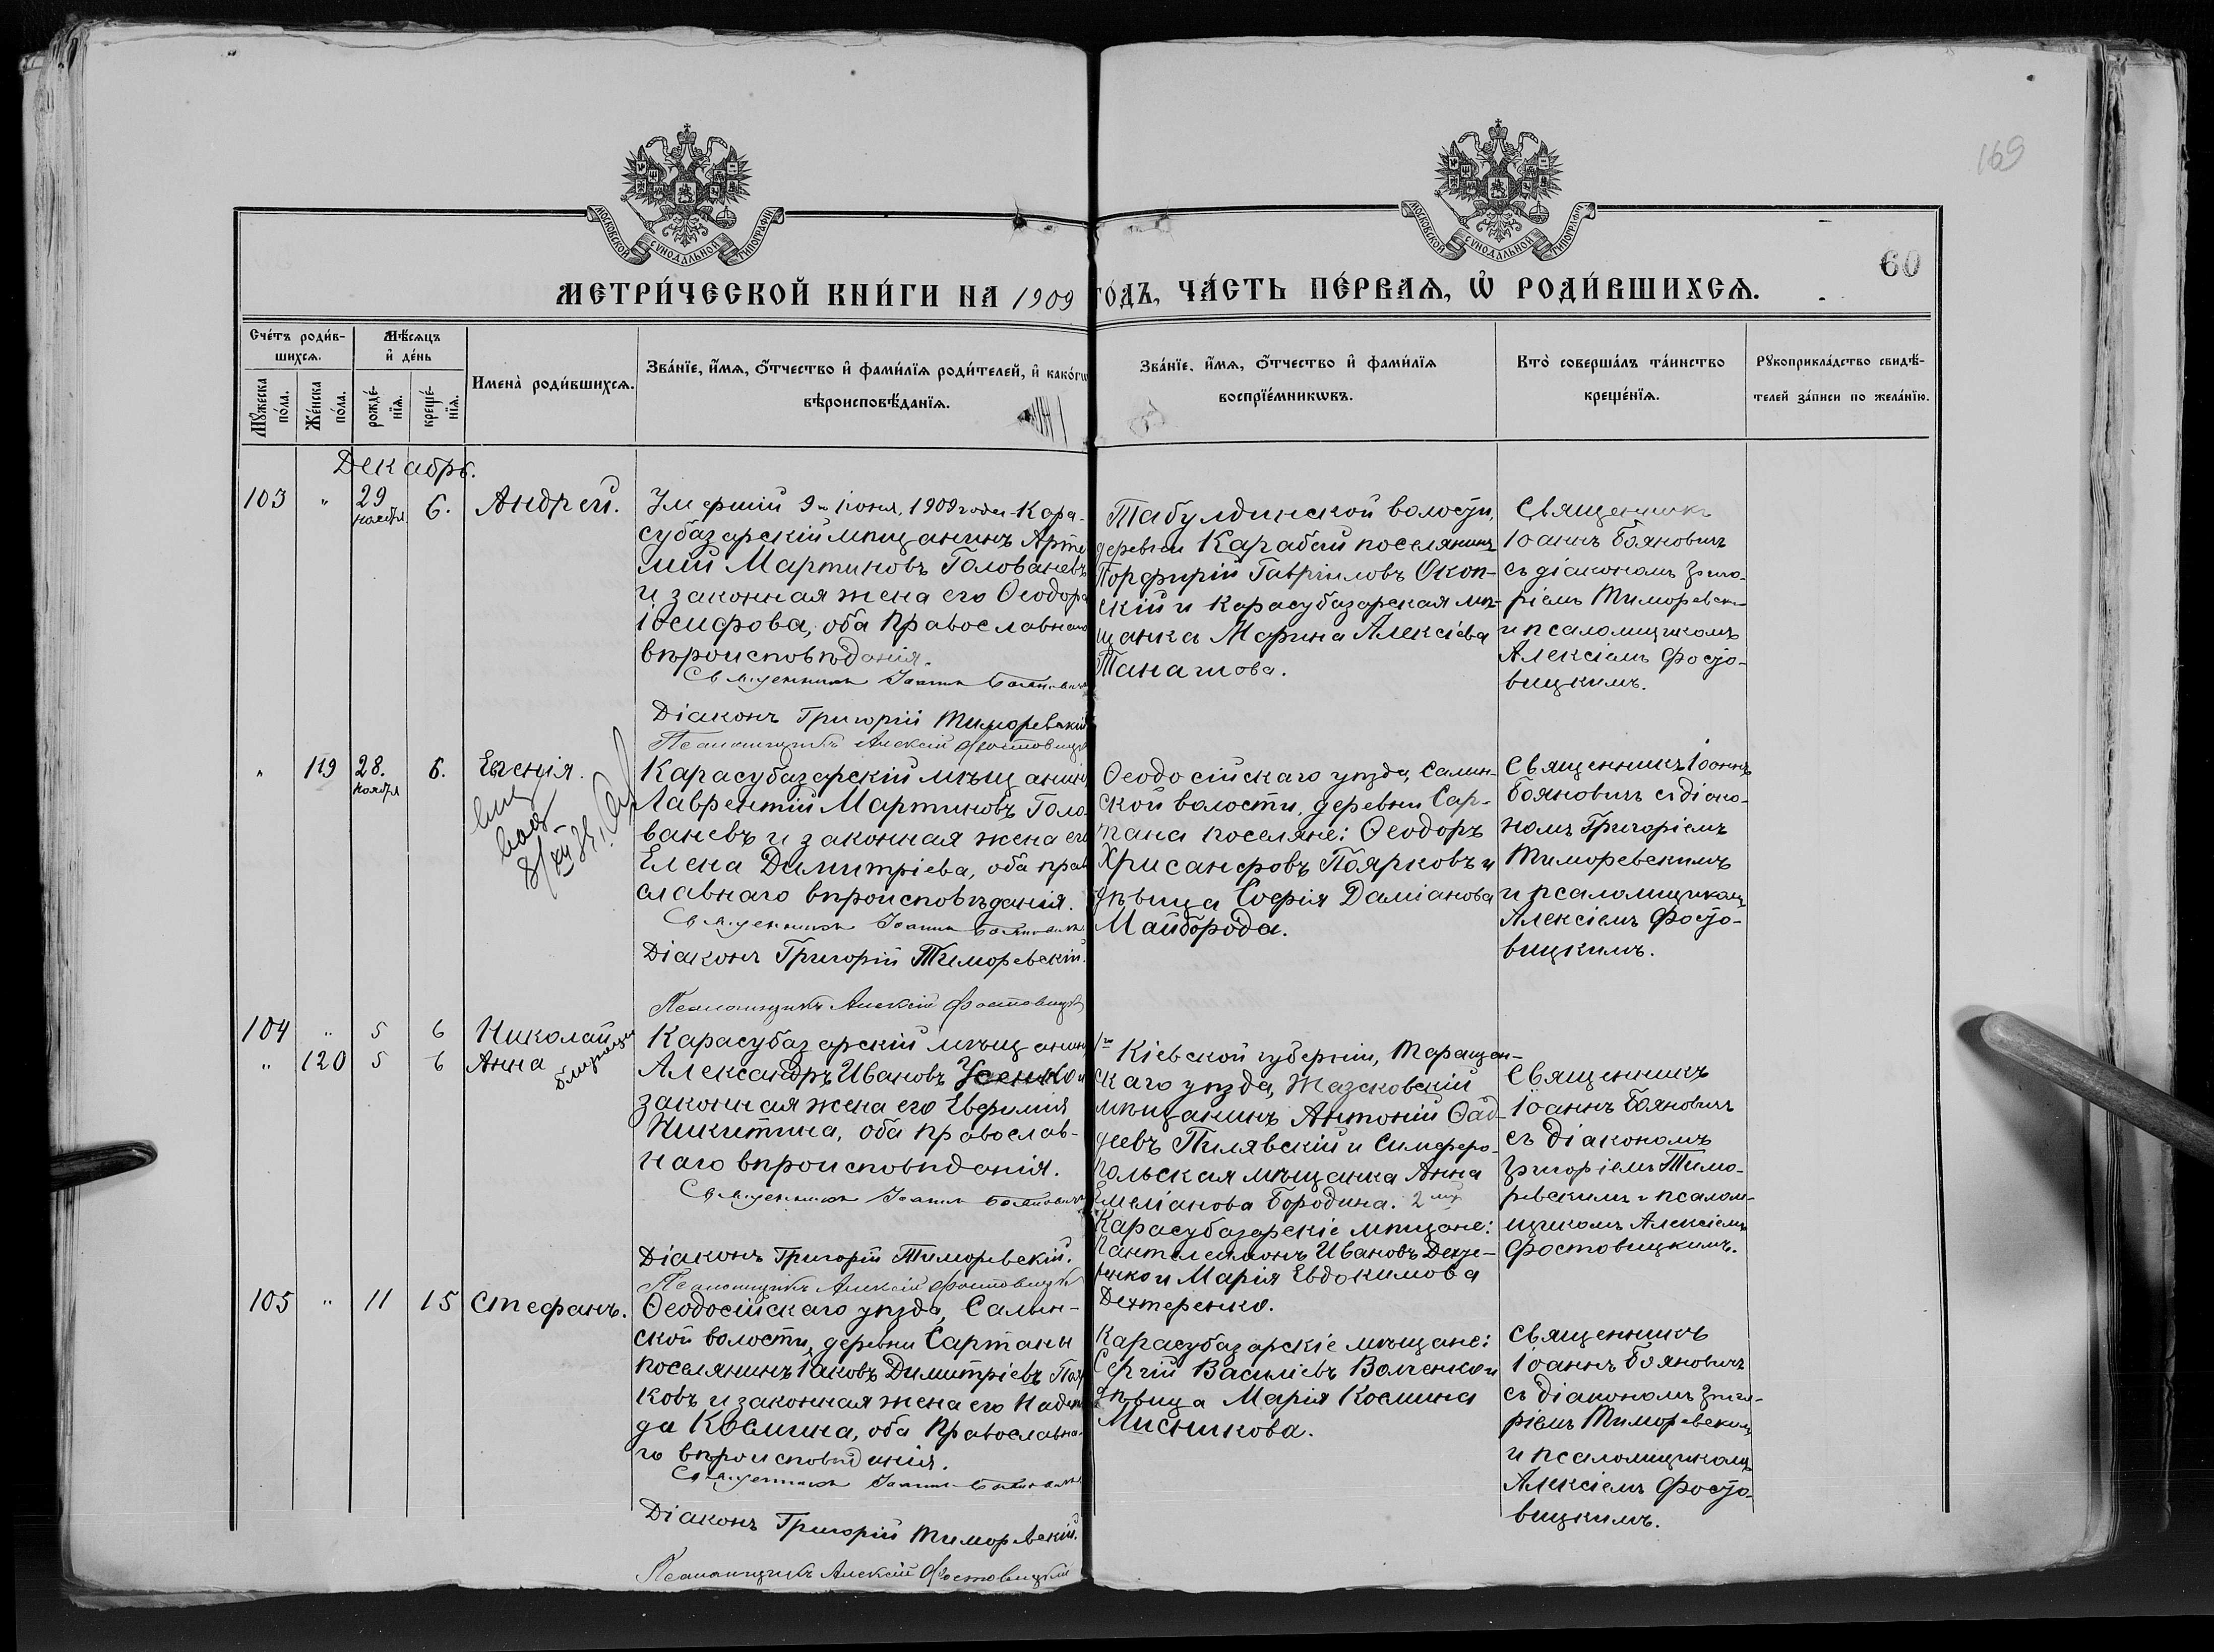 169
МОСКОВСКОЙ СѴНОДАЛЬНОЙ ТИПОГРАФІИ
МОСКОВСКОЙ СѴНОДАЛЬНОЙ ТИПОГРАФІИ
60
МЕТРИ́ЧЕСКОЙ КНИ́ГИ НА 1909 ГО́ДЪ, ЧА́СТЬ ПЕ́РВАѦ, Ѽ РОДИ́ВШИХСѦ.
Сче́тъ роди́в-
шихсѧ.
Мѣ́сѧцъ
и҆ де́нь
Мꙋ́жеска
по́ла.
Же́нска
по́ла.
рожде́-
нїѧ.
креще́-
нїѧ.
Имена̀ роди́вшихсѧ.
Зва́нїе, и҆́мѧ, ѻ҆́тчество и҆ фами́лїѧ роди́телей, и҆ како́гѡ
вѣроисповѣ́данїѧ.
Зва́нїе, и҆́мѧ, ѻ҆́тчество и҆ фами́лїѧ
воспрїе́мникѡвъ.
Кто̀ соверша́лъ та́инство
креще́нїѧ.
Рꙋкоприкла́дство свидѣ́-
телей за́писи по жела́нїю.
Декабрь.
103 " 29 ноября 6. Андрей.
Умершій 9го іюня, 1909 года Кара-
субазарскій мѣщанинъ Арте
мій Мартиновъ Голованевъ
и законная жена его Ѳеодора
Іосифова, оба Православнаго
вѣроисповѣданія.
Священникъ Іоаннъ Бояновичъ
Діаконъ Григорій Тиморевскій
Псаломщикъ Алексій Фостовицкі
Табулдинской волости,
деревни Карабай поселянинъ
Порфирій Гавріиловъ Окоп-
скій и Карасубазарская мѣ-
щанка Марина Алексіева
Танагова.
Священникъ
Іоаннъ Бояновичъ
съ діакономъ Григо-
ріемъ Тиморевски
и псаломщикомъ
Алексіемъ Фосто-
вицкимъ.
" 119 28. ноября 6. Евгенія.
Карасубазарскій мѣщанинъ
Лаврентій Мартиновъ Голо
ваневъ и законная жена его
Елена Димитріева, оба прав
славнаго вѣроисповѣданія.
Священникъ Іоаннъ Бояновичъ
Діаконъ Григорій Тиморевскій.
Псаломщикъ Алексій Фостовицкі
Ѳеодосійскаго уѣзда, Салын-
ской волости, деревни Сар-
тана поселяне: Ѳеодоръ
Хрисанфовъ Поярковъ и
дѣвица Софія Даміанова
Майборода.
Священникъ Іоаннъ
Бояновичъ съ діако-
номъ Григоріемъ
Тиморевскимъ
и псаломщикомъ
Алексіемъ Фосто-
вицкимъ.
104 " 5 6 Николай
" 120 5 6 Анна
близнецы
Карасубазарскій мѣщанинъ
Александръ Ивановъ Усенко и
законная жена его Евфимія
Никитина, оба православ-
наго вѣроисповѣданія.
Священникъ Іоаннъ Бояновичъ
Діаконъ Григорій Тиморевскій.
Псаломщикъ Алексій Фостовицкі
1хъ Кіевской губерніи, Таращан-
скаго уѣзда, Жазковскій
мѣщанинъ Антоній Ѳад-
деевъ Пилявскій и Симферо-
польская мѣщанка Анна
Емеліанова Бородина. 2хъ
Карасубазарскіе мѣщане:
Пантелеимонъ Ивановъ
и Марія Евдокимова
Дехтеренко.
Священникъ
Іоаннъ Бояновичъ
съ діакономъ
Григоріемъ Тимо-
ревскимъ и псалом-
щикомъ Алексіемъ
Фостовицкимъ.
105 " 11 15 Стефанъ.
Ѳеодосійскаго уѣзда, Салын-
ской волости, деревни Сартаны
поселянинъ Іаковъ Димитріевъ Пояр
ковъ и законная жена его Надеж
да Космина, оба Православна-
го вѣроисповѣданія.
Священникъ Іоаннъ Бояновичъ
Діаконъ Григорій Тиморевскій.
Псаломщикъ Алексій Фостовицкій
Карасубазарскіе мѣщане:
Сергій Василіевъ Волченко и
дѣвица Марія Космина
Мисникова.
Священникъ
Іоаннъ Бояновичъ
съ діакономъ Григо-
ріемъ Тиморевскимъ
и псаломщикомъ
Алексіемъ Фосто-
вицкимъ.